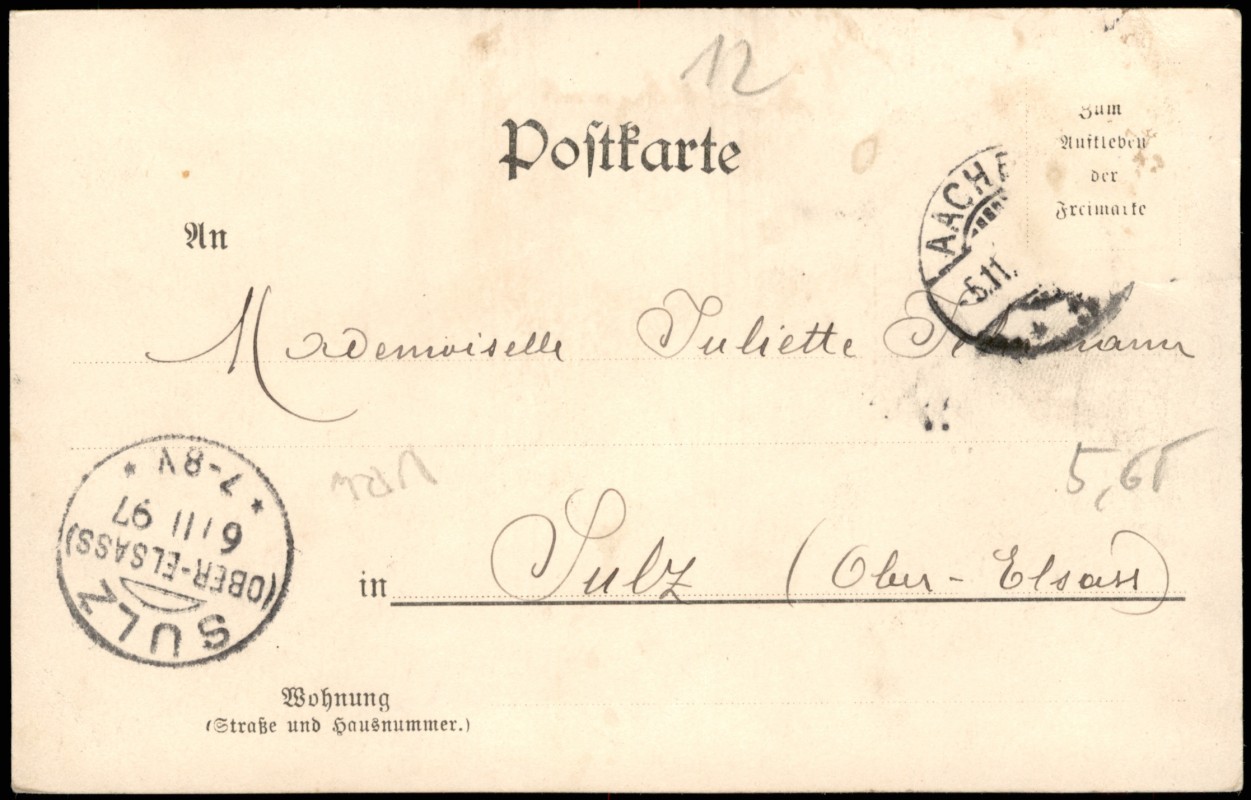 12
Postkarte
Zum
Aufkleben
der
Freimarke
AACHE
5.11.
An
Mademoiselle Juliette
5,65
7-8V
6 III 97
(OBER-ELSASS)
SULZ
in Sulz (Ober-Elsass)
Wohnung
(Straße und Hausnummer.)